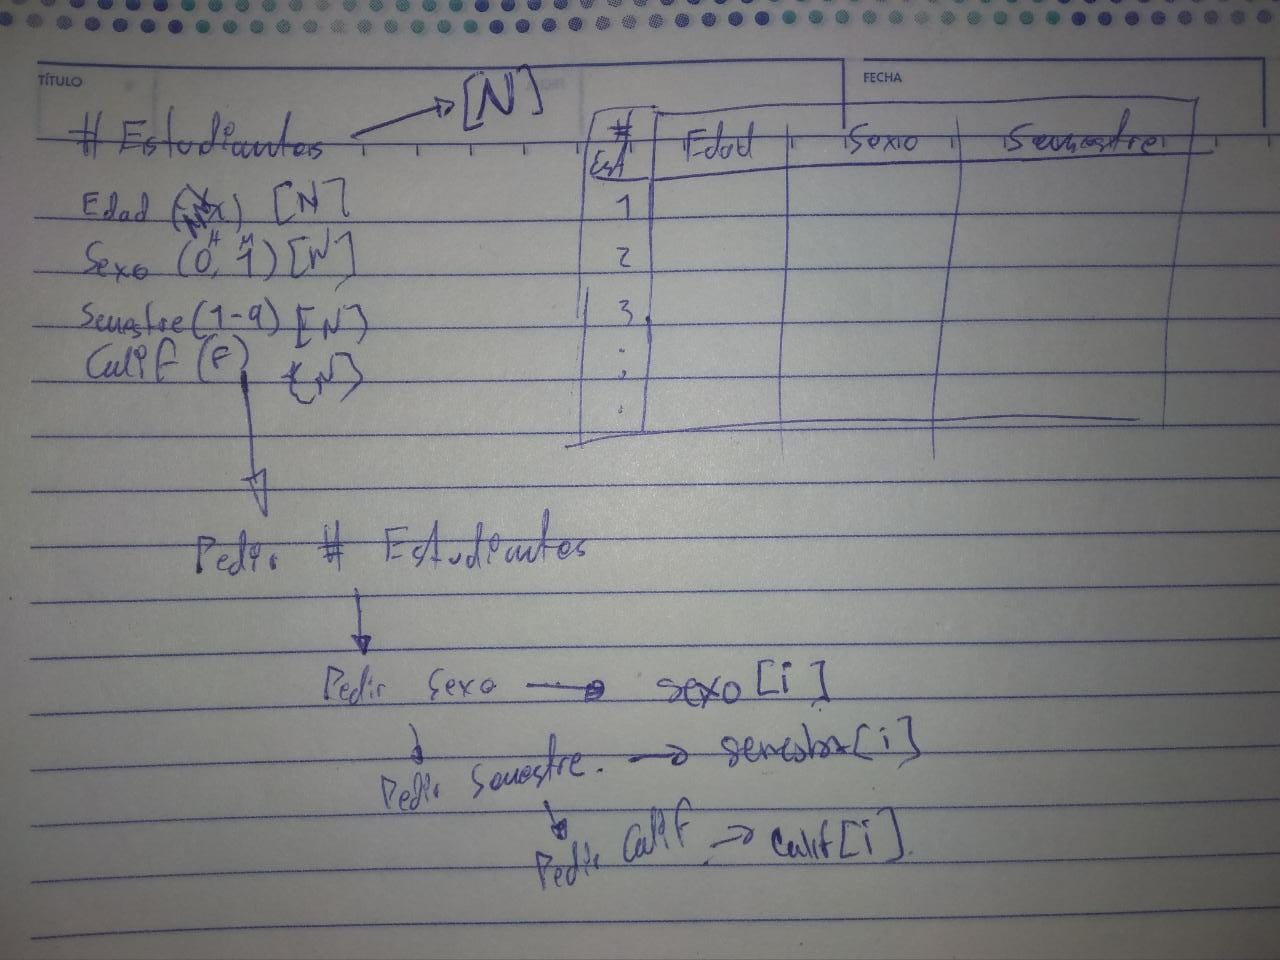 TÍTULO
FECHA
# Estudiantes → [N]
Edad [N]
Sexo (0, 1) [N]
H M
Semestre (1-9) [N]
Calif (F) [N]
# Est Edad Sexo Semestre
1
2
3
Pedir # Estudiantes
Pedir Sexo → sexo [i]
Pedir Semestre. → semestre [i]
Pedir Calif → calif [i]